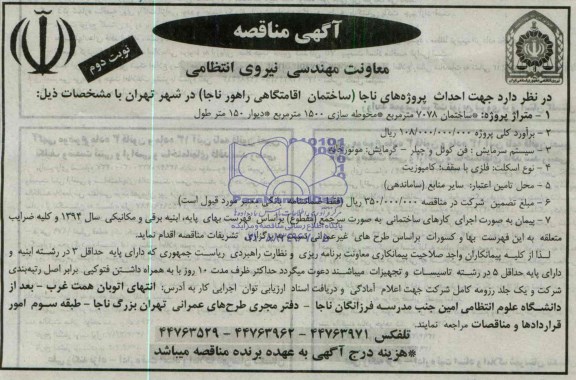 آگهی مناقصه
نوبت دوم
معاونت مهندسی نیروی انتظامی
در نظر دارد جهت احداث پروژه‌های ناجا (ساختمان اقامتگاهی راهور ناجا) در شهر تهران با مشخصات ذیل:
۱ - متراژ پروژه: *ساختمان ۷۰۷۸ مترمربع *محوطه سازی ۱۵۰۰ مترمربع *دیوار ۱۵۰ متر طول
۲ - برآورد کلی پروژه ۱۰۸/۰۰۰/۰۰۰/۰۰۰ ریال
۳ - سیستم سرمایش: فن کوئل و چیلر - گرمایش: موتورخانه
۴ - نوع اسکلت: فلزی با سقف: کامپوزیت
۵ - محل تامین اعتبار: سایر منابع (ساماندهی)
۶ - مبلغ تضمین شرکت در مناقصه ۳۵۰/۰۰۰/۰۰۰ ریال (فقط ضمانتنامه بانکی معتبر مورد قبول است)
۷ - پیمان به صورت اجرای کارهای ساختمانی به صورت سرجمع (مقطوع) براساس فهرست بهای پایه، ابنیه برقی و مکانیکی سال ۱۳۹۴ و کلیه ضرایب
متعلقه به این فهرست بها و کسورات براساس طرح های غیرعمرانی نسبت به برگزاری تشریفات مناقصه اقدام نماید.
لذا از کلیه پیمانکاران واجد صلاحیت پیمانکاری معاونت برنامه ریزی و نظارت راهبردی ریاست جمهوری که دارای پایه حداقل ۳ در رشته ابنیه و
دارای پایه حداقل ۵ در رشته تاسیسات و تجهیزات میباشند دعوت میگردد حداکثر ظرف مدت ۱۰ روز با به همراه داشتن فتوکپی برابر اصل رتبه‌بندی
شرکت و یک جلد رزومه کامل شرکت جهت اعلام آمادگی و دریافت اسناد ارزیابی توان اجرایی کار به آدرس: انتهای اتوبان همت غرب - بعد از
دانشگاه علوم انتظامی امین جنب مدرسه فرزانگان ناجا - دفتر مجری طرح‌های عمرانی تهران بزرگ ناجا - طبقه سوم امور
قراردادها و مناقصات مراجعه نمایند.
تلفکس ۴۴۷۶۳۹۷۱ - ۴۴۷۶۳۹۶۲ - ۴۴۷۶۳۵۲۹
*هزینه درج آگهی به عهده برنده مناقصه میباشد